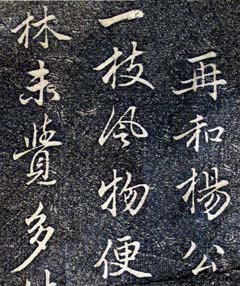 再和楊公
一枝風物便
林未覺多